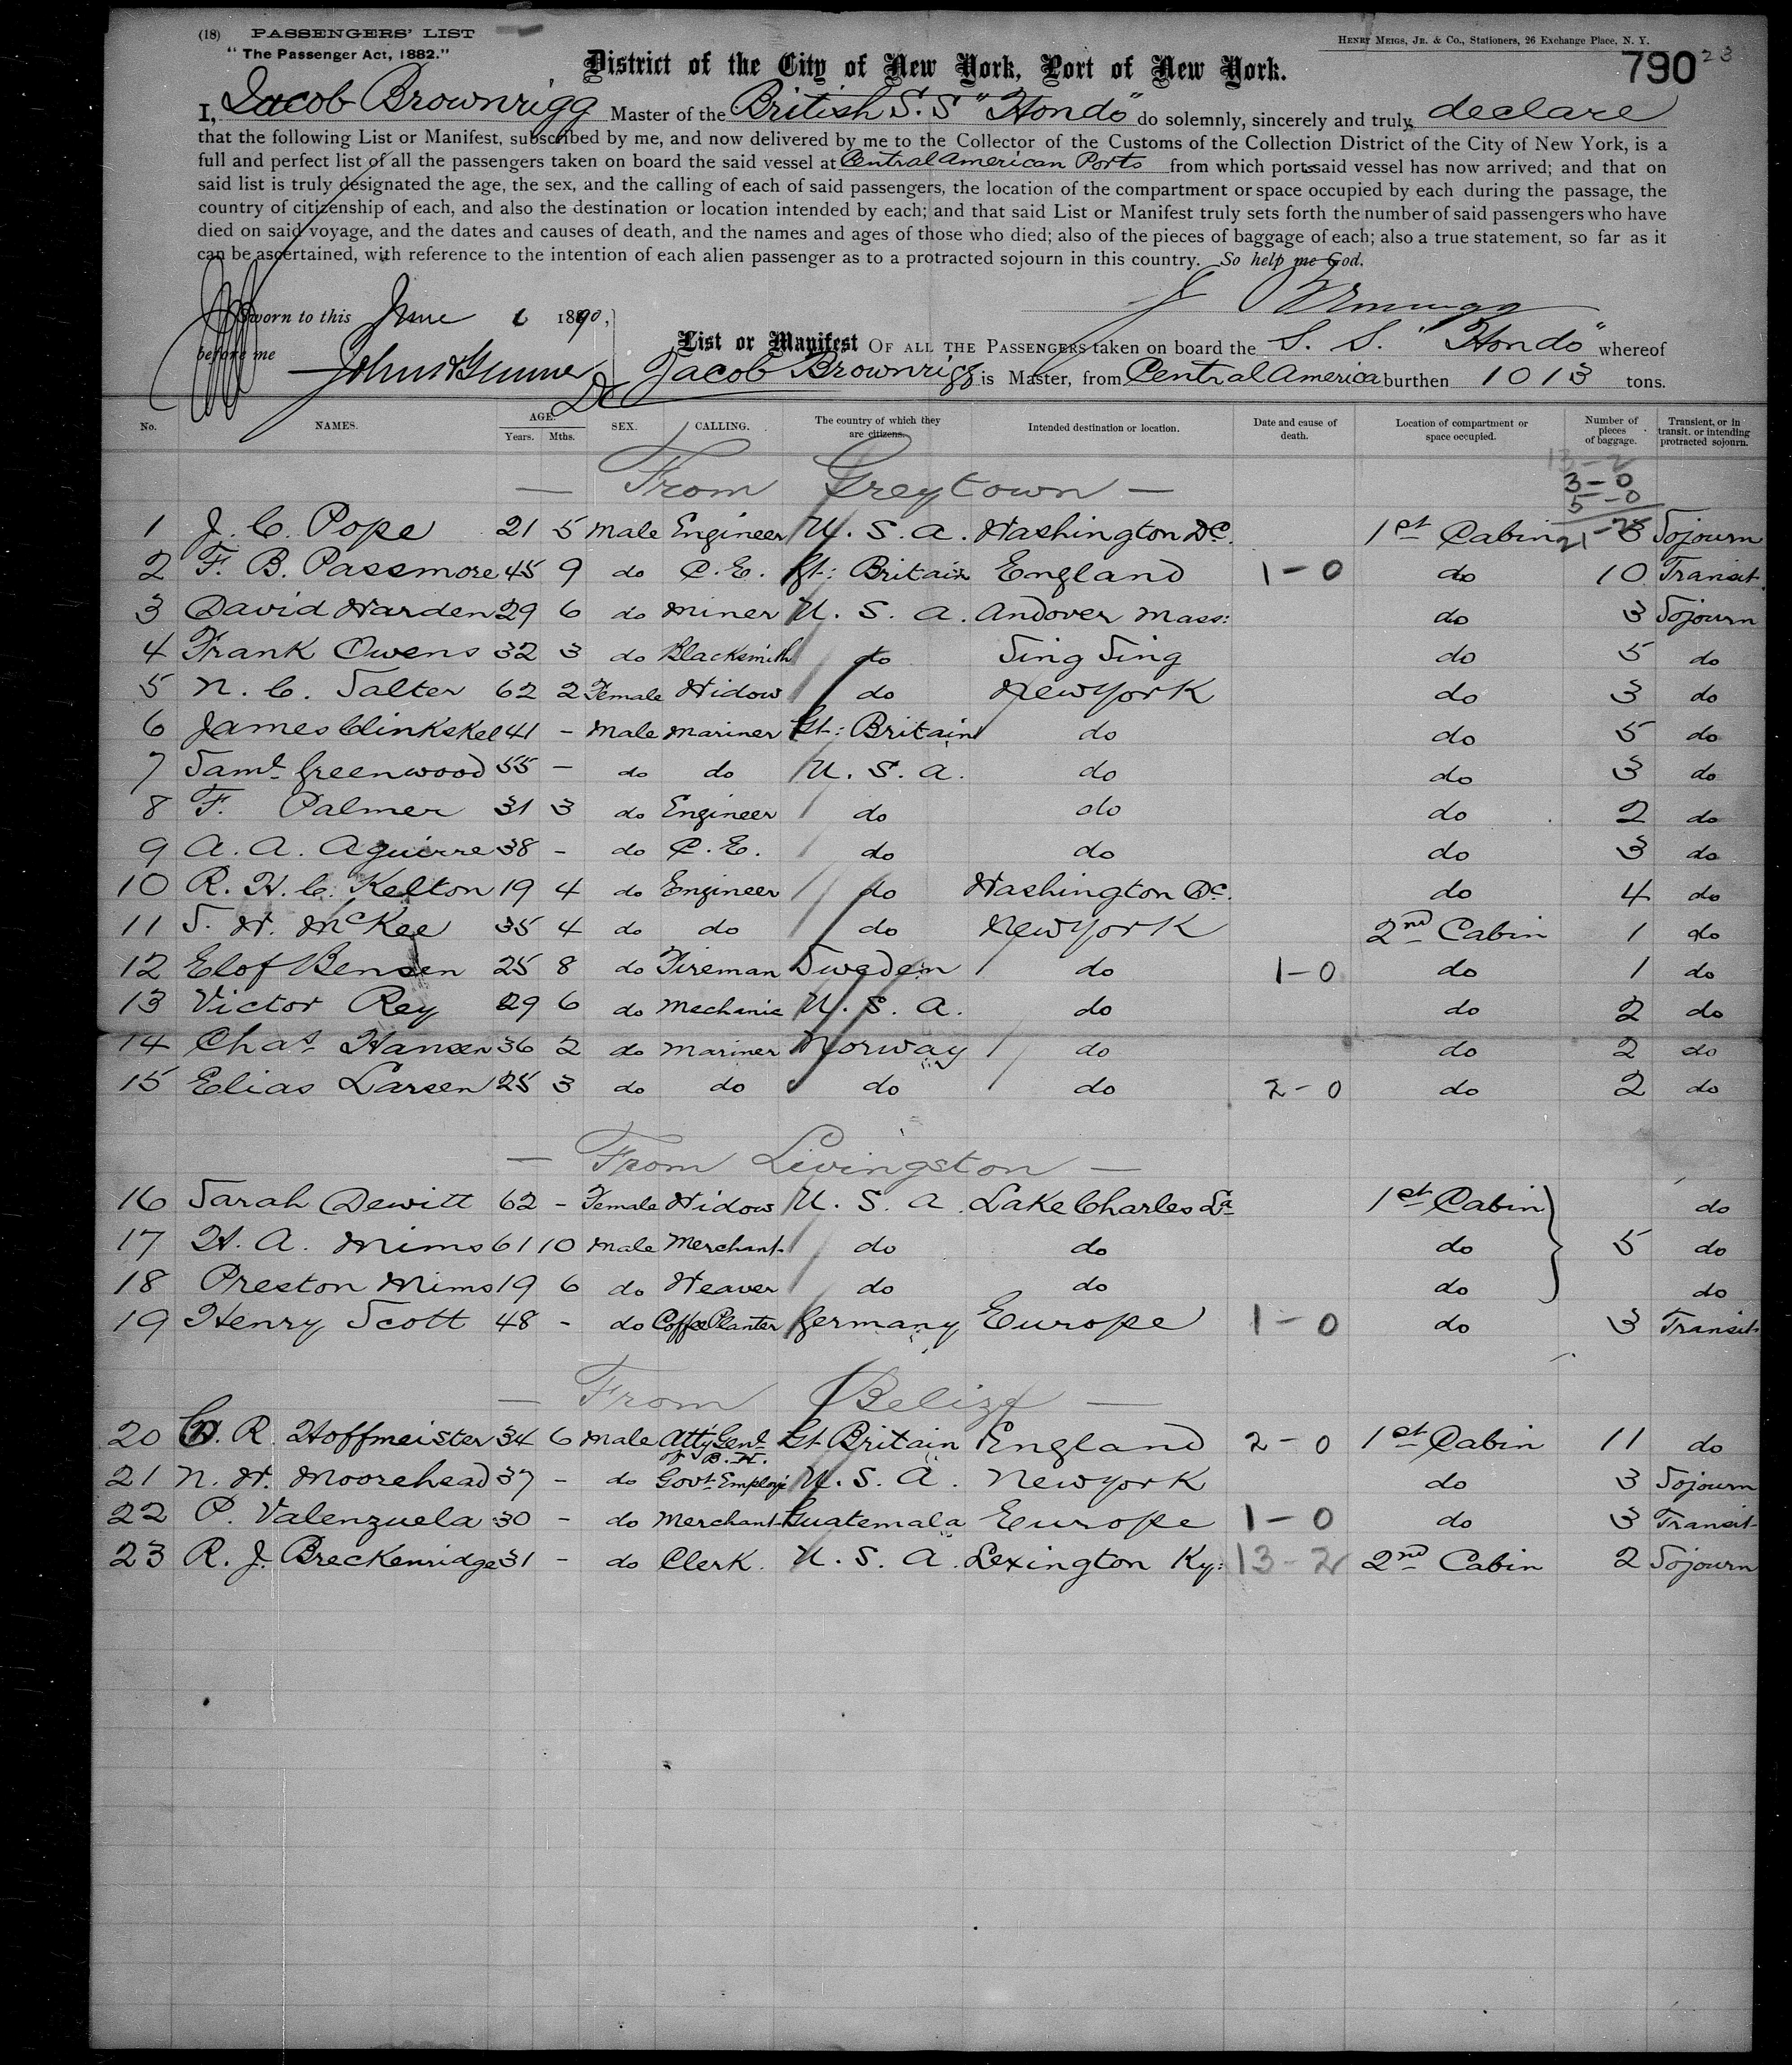 (18) PASSENGERS' LIST
HENRY MEIGS, JR. & CO., Stationers, 26 Exchange Place, N. Y.
"The Passenger Act, 1882."
District of the City of New York, Port of New York.
790 23
I, Jacob Brownrigg Master of the British S.S "Hondo" do solemnly, sincerely and truly declare
that the following List or Manifest, subscribed by me, and now delivered by me to the Collector of the Customs of the Collection District of the City of New York, is a
full and perfect list of all the passengers taken on board the said vessel at Central American Ports from which ports said vessel has now arrived; and that on
said list is truly designated the age, the sex, and the calling of each of said passengers, the location of the compartment or space occupied by each during the passage, the
country of citizenship of each, and also the destination or location intended by each; and that said List or Manifest truly sets forth the number of said passengers who have
died on said voyage, and the dates and causes of death, and the names and ages of those who died; also of the pieces of baggage of each; also a true statement, so far as it
can be ascertained, with reference to the intention of each alien passenger as to a protracted sojourn in this country. So help me God.
Sworn to this June 6 1890,
before me
List or Manifest OF ALL THE PASSENGERS taken on board the S. S. "Hondo" whereof
Jacob Brownrigg is Master, from Central America burthen 1013 tons.
No. NAMES. AGE. Years. Mths. SEX. CALLING. The country of which they are citizens. Intended destination or location. Date and cause of death. Location of compartment or space occupied. Number of pieces of baggage. Transient, or in transit, or intending protracted sojourn.
13-2
3-0
5-0
21-2
— From Greytown —
1 J. C. Pope 21 5 Male Engineer U. S. A. Washington DC. 1st Cabin 3 Sojourn
2 F. B. Passmore 45 9 do C.E. Gt: Britain England 1-0 do 10 Transit
3 David Warden 29 6 do Miner U. S. A. Andover Mass: do 3 Sojourn
4 Frank Owens 32 3 do Blacksmith do Sing Sing do 5 do
5 N. C. Salter 62 2 Female Widow do New York do 3 do
6 James Clinkskel 41 - Male Mariner Gt: Britain do do 5 do
7 Saml Greenwood 55 - do do U. S. A. do do 3 do
8 F. Palmer 31 3 do Engineer do do do 2 do
9 A. A. Aguirre 38 - do C.E. do do do 3 do
10 R. H. C. Kelton 19 4 do Engineer do Washington DC. do 4 do
11 S. W. McKee 35 4 do do do New York 2nd Cabin 1 do
12 Elof Bensen 25 8 do Fireman Sweden do 1-0 do 1 do
13 Victor Rey 29 6 do Mechanic U. S. A. do do 2 do
14 Chas Hansen 36 2 do Mariner Norway do do 2 do
15 Elias Larsen 25 3 do do do do 2-0 do 2 do
— From Livingston —
16 Sarah Dewitt 62 - Female Widow U. S. A. Lake Charles La 1st Cabin do
17 H. A. Mims 61 10 Male Merchant do do do 5 do
18 Preston Mims 19 6 do Weaver do do do do
19 Henry Scott 48 - do Coffee Planter Germany Europe 1-0 do 3 Transit
— From Belize —
20 R. Hoffmeister 34 6 Male Atty Genl of B. H. Gt Britain England 2-0 1st Cabin 11 do
21 N. W. Moorehead 37 - do Govt Employe U. S. A. New York do 3 Sojourn
22 P. Valenzuela 30 - do Merchant Guatemala Europe 1-0 do 3 Transit
23 R. J. Breckenridge 31 - do Clerk. U. S. A. Lexington Ky: 13-2 2nd Cabin 2 Sojourn